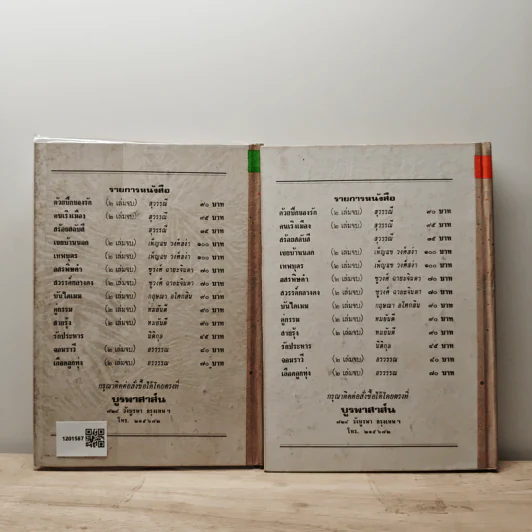 รายการหนังสือ
ด้วยปีกของรัก (๒ เล่มจบ) สุวรรณี ๙๐ บาท
คนเริงเมือง (๒ เล่มจบ) สุวรรณี ๗๕ บาท
สร้อยสลับสี สุวรรณี ๓๕ บาท
เขยบ้านนอก (๒ เล่มจบ) เพ็ญแข วงศ์สง่า ๑๐๐ บาท
เทพบุตร (๒ เล่มจบ) เพ็ญแข วงศ์สง่า ๑๐๐ บาท
อสรพิษดำ (๒ เล่มจบ) ชูวงศ์ ฉายะจินดา ๗๐ บาท
สวรรค์กลางดง (๒ เล่มจบ) ชูวงศ์ ฉายะจินดา ๗๐ บาท
บันไดเมฆ (๒ เล่มจบ) กฤษณา อโศกสิน ๗๐ บาท
คู่กรรม (๒ เล่มจบ) ทมยันตี ๗๐ บาท
สายรุ้ง (๒ เล่มจบ) ทมยันตี ๗๐ บาท
รัฐประหาร นิติกุล ๔๕ บาท
จอมราวี (๒ เล่มจบ) อรวรรณ ๘๐ บาท
เลือดลูกทุ่ง (๒ เล่มจบ) อรวรรณ ๘๐ บาท
กรุณาติดต่อสั่งซื้อได้โดยตรงที่
บูรพาสาส์น
๗๒๔ วังบูรพา กรุงเทพ ฯ
โทร. ๒๑๕๖๘๒
1201567
รายการหนังสือ
ด้วยปีกของรัก (๒ เล่มจบ) สุวรรณี ๙๐ บาท
คนเริงเมือง (๒ เล่มจบ) สุวรรณี ๗๕ บาท
สร้อยสลับสี สุวรรณี ๓๕ บาท
เขยบ้านนอก (๒ เล่มจบ) เพ็ญแข วงศ์สง่า ๑๐๐ บาท
เทพบุตร (๒ เล่มจบ) เพ็ญแข วงศ์สง่า ๑๐๐ บาท
อสรพิษดำ (๒ เล่มจบ) ชูวงศ์ ฉายะจินดา ๗๐ บาท
สวรรค์กลางดง (๒ เล่มจบ) ชูวงศ์ ฉายะจินดา ๗๐ บาท
บันไดเมฆ (๒ เล่มจบ) กฤษณา อโศกสิน ๗๐ บาท
คู่กรรม (๒ เล่มจบ) ทมยันตี ๗๐ บาท
สายรุ้ง (๒ เล่มจบ) ทมยันตี ๗๐ บาท
รัฐประหาร นิติกุล ๔๕ บาท
จอมราวี (๒ เล่มจบ) อรวรรณ ๘๐ บาท
เลือดลูกทุ่ง (๒ เล่มจบ) อรวรรณ ๘๐ บาท
กรุณาติดต่อสั่งซื้อได้โดยตรงที่
บูรพาสาส์น
๗๒๔ วังบูรพา กรุงเทพ ฯ
โทร. ๒๑๕๖๘๒